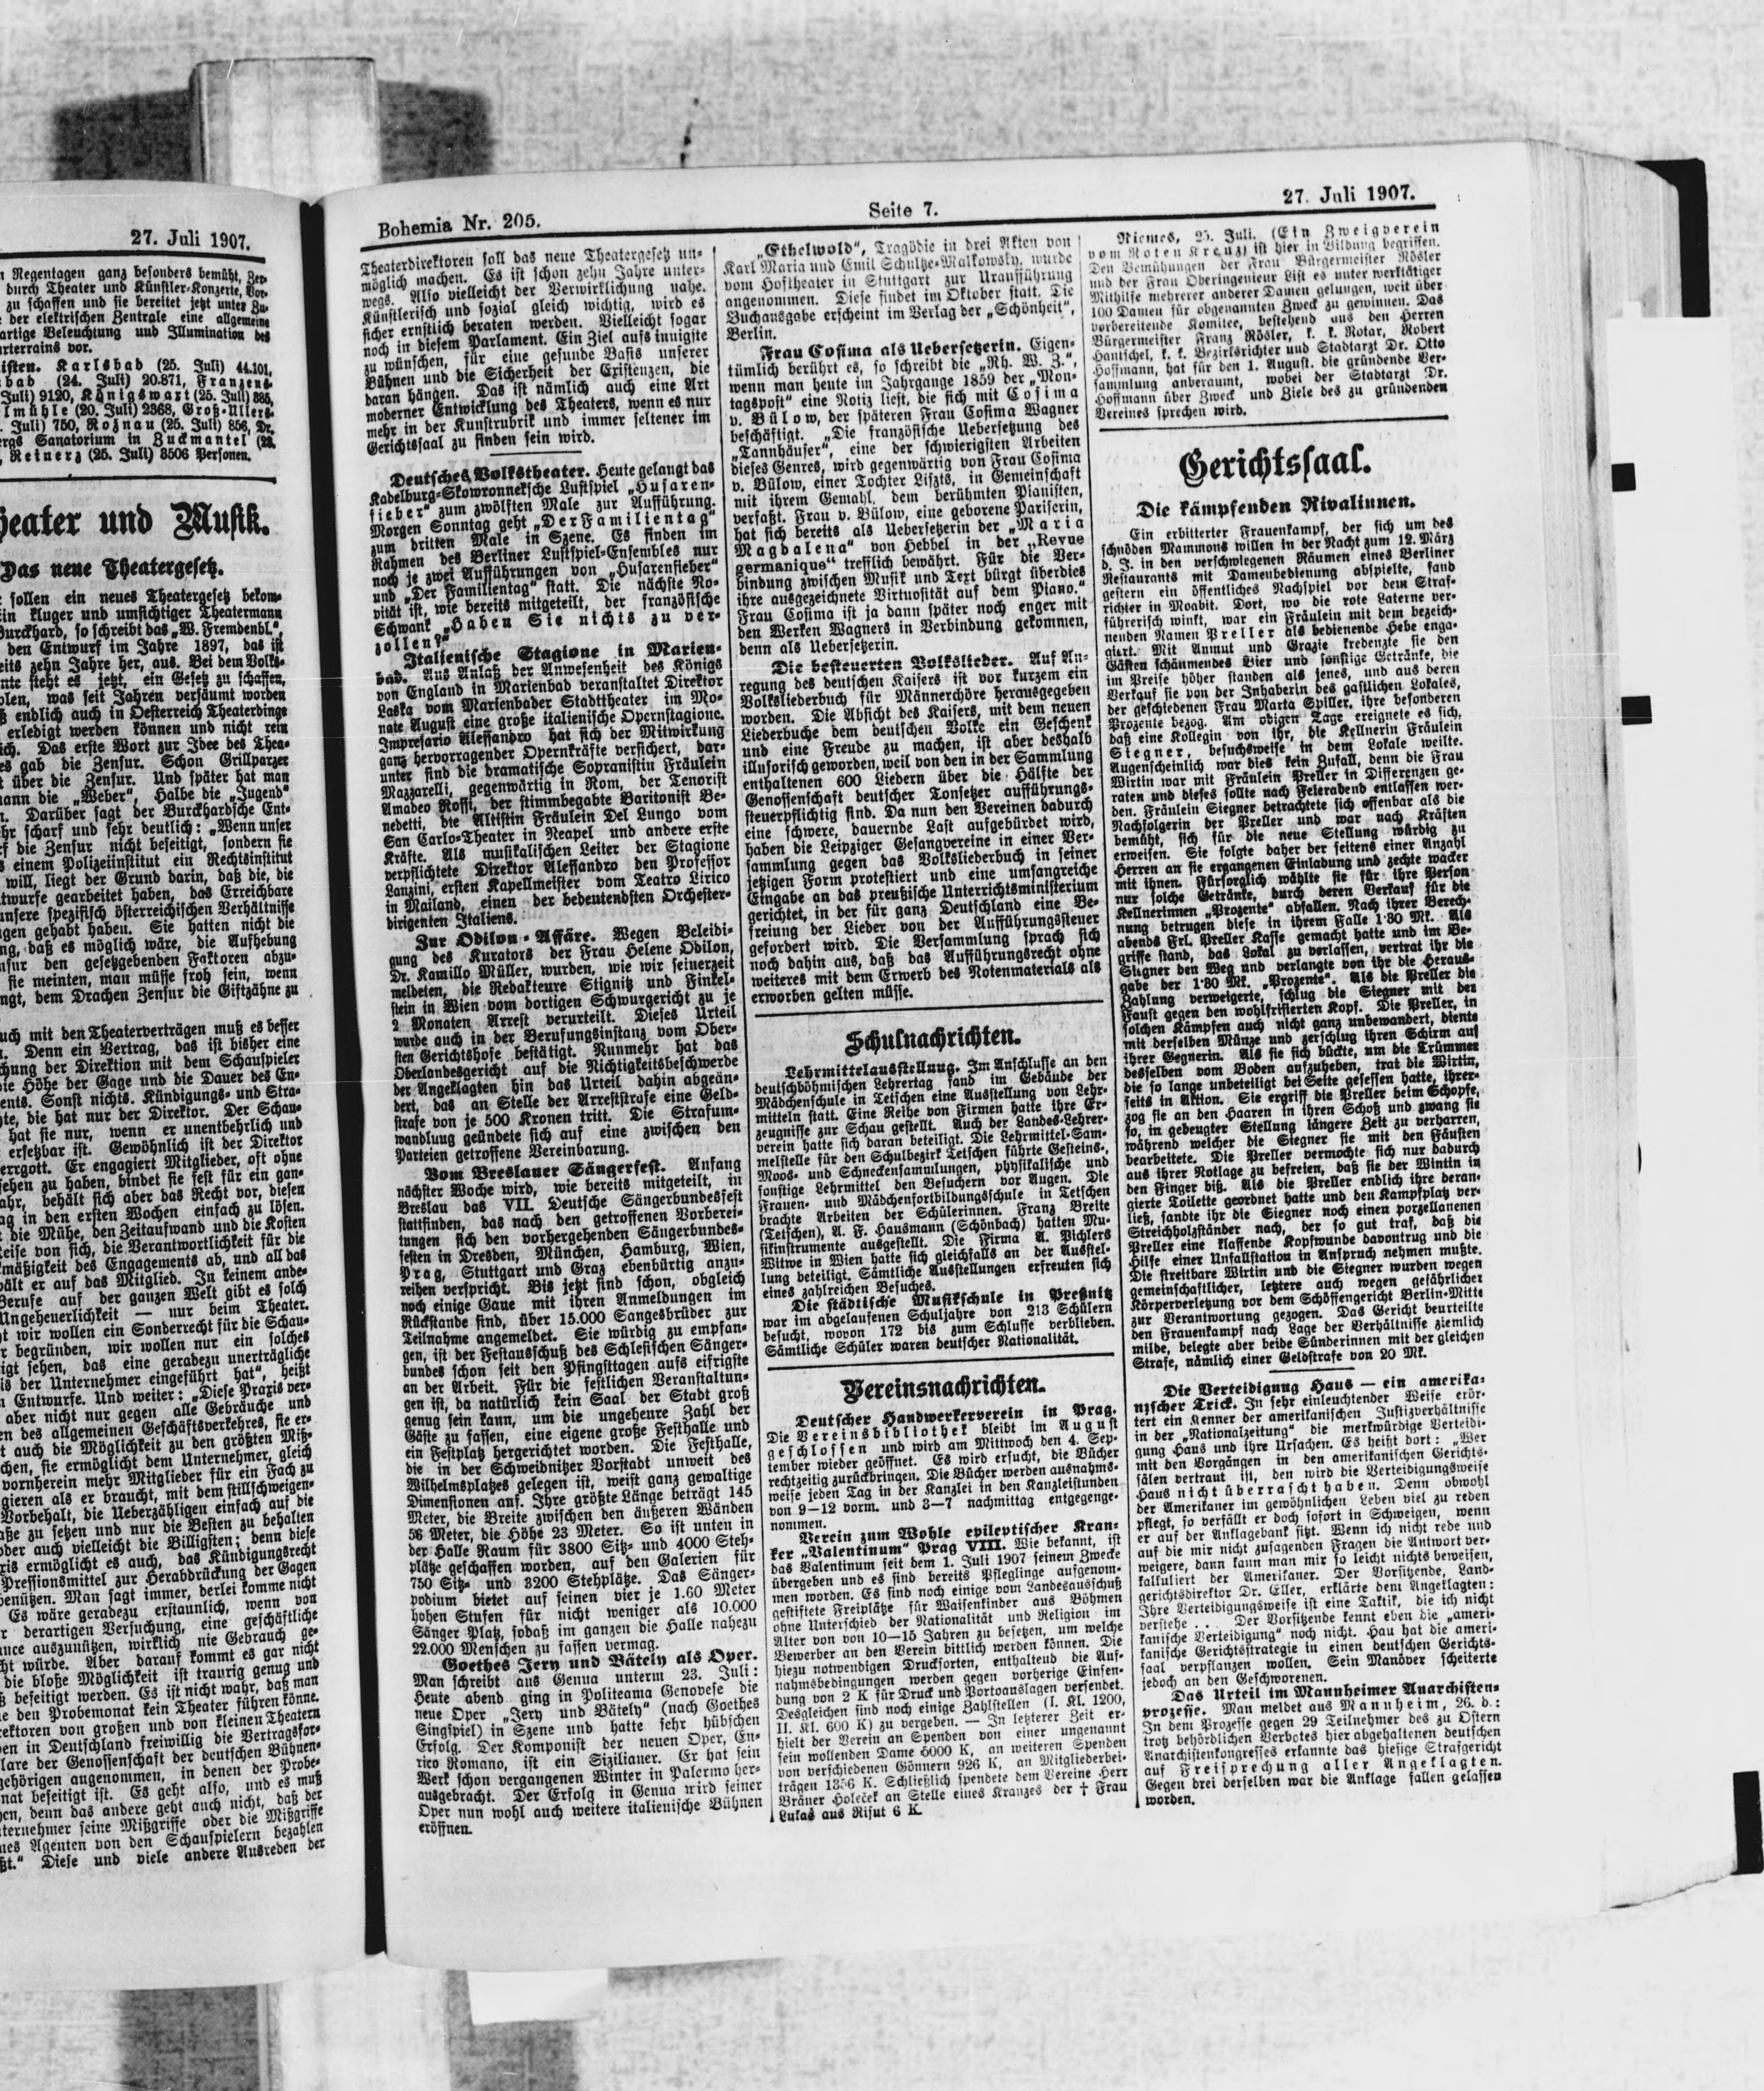 27. Juli 1907.
Regentagen ganz besonders bemüht, Zer-
durch Theater und Künstler-Konzerte, Vor-
zu schaffen und sie bereitet jetzt unter Zu-
der elektrischen Zentrale eine allgemeine
artige Beleuchtung und Illumination des
vor.
Karlsbad (25. Juli) 44.101,
(24. Juli) 20.871, Franzens-
Juli) 9120, Königswart (25. Juli) 885,
(20. Juli) 2368, Groß-Ullers-
Juli) 750, Rožnau (25. Juli) 856, Dr.
Sanatorium in Zuckmantel
Reinerz (25. Juli) 8506 Personen.
und Musik.
Das neue Theatergesetz.
sollen ein neues Theatergesetz bekom-
kluger und umsichtiger Theatermann
Burckhard, so schreibt das „W. Fremdenbl.“,
den Entwurf im Jahre 1897, das ist
zehn Jahre her, aus. Bei dem Volks-
steht es jetzt, ein Gesetz zu schaffen,
was seit Jahren versäumt worden
endlich auch in Oesterreich Theaterdinge
erledigt werden können und nicht rein
Das erste Wort zur Idee des Thea-
gab die Zensur. Schon Grillparzer
über die Zensur. Und später hat man
die „Weber“, Halbe die „Jugend“
Darüber sagt der Burckhardsche Ent-
scharf und sehr deutlich: „Wenn unser
die Zensur nicht beseitigt, sondern sie
einem Polizeiinstitut ein Rechtsinstitut
will, liegt der Grund darin, daß die, die
gearbeitet haben, das Erreichbare
unsere spezifisch österreichischen Verhältnisse
gehabt haben. Sie hatten nicht die
daß es möglich wäre, die Aufhebung
den gesetzgebenden Faktoren abzu-
sie meinten, man müsse froh sein, wenn
dem Drachen Zensur die Giftzähne zu
mit den Theaterverträgen muß es besser
Denn ein Vertrag, das ist bisher eine
der Direktion mit dem Schauspieler
die Höhe der Gage und die Dauer des En-
Sonst nichts. Kündigungs- und Stra-
die hat nur der Direktor. Der Schau-
hat sie nur, wenn er unentbehrlich und
ersetzbar ist. Gewöhnlich ist der Direktor
Er engagiert Mitglieder, oft ohne
zu haben, bindet sie fest für ein gan-
behält sich aber das Recht vor, diesen
in den ersten Wochen einfach zu lösen.
die Mühe, den Zeitaufwand und die Kosten
von sich, die Verantwortlichkeit für die
des Engagements ab, und all das
er auf das Mitglied. In keinem ande-
Berufe auf der ganzen Welt gibt es solch
Ungeheuerlichkeit — nur beim Theater.
wir wollen ein Sonderrecht für die Schau-
begründen, wir wollen nur ein solches
sehen, das eine geradezu unerträgliche
der Unternehmer eingeführt hat“, heißt
Entwurfe. Und weiter: „Diese Praxis ver-
aber nicht nur gegen alle Gebräuche und
des allgemeinen Geschäftsverkehres, sie er-
auch die Möglichkeit zu den größten Miß-
sie ermöglicht dem Unternehmer, gleich
vornherein mehr Mitglieder für ein Fach zu
als er braucht, mit dem stillschweigen-
Vorbehalt, die Ueberzähligen einfach auf die
zu setzen und nur die Besten zu behalten
oder auch vielleicht die Billigsten; denn diese
ermöglicht es auch, das Kündigungsrecht
Pressionsmittel zur Herabdrückung der Gagen
benützen. Man sagt immer, derlei komme nicht
Es wäre geradezu erstaunlich, wenn von
derartigen Versuchung, eine geschäftliche
auszunützen, wirklich nie Gebrauch ge-
würde. Aber darauf kommt es gar nicht
die bloße Möglichkeit ist traurig genug und
beseitigt werden. Es ist nicht wahr, daß man
den Probemonat kein Theater führen könne.
von großen und von kleinen Theatern
in Deutschland freiwillig die Vertragsfor-
der Genossenschaft der deutschen Bühnen-
angenommen, in denen der Probe-
beseitigt ist. Es geht also, und es muß
denn das andere geht auch nicht, daß der
seine Mißgriffe oder die Mißgriffe
Agenten von den Schauspielern bezahlen
Diese und viele andere Ausreden der
Bohemia Nr. 205.
Seite 7.
27. Juli 1907.
Theaterdirektoren soll das neue Theatergesetz un-
möglich machen. Es ist schon zehn Jahre unter-
wegs. Also vielleicht der Verwirklichung nahe.
Künstlerisch und sozial gleich wichtig, wird es
sicher ernstlich beraten werden. Vielleicht sogar
noch in diesem Parlament. Ein Ziel aufs innigste
zu wünschen, für eine gesunde Basis unserer
Bühnen und die Sicherheit der Existenzen, die
daran hängen. Das ist nämlich auch eine Art
moderner Entwicklung des Theaters, wenn es nur
mehr in der Kunstrubrik und immer seltener im
Gerichtssaal zu finden sein wird.
Deutsches Volkstheater. Heute gelangt das
Kadelburg-Skowronneksche Lustspiel „Husaren-
fieber“ zum zwölften Male zur Aufführung.
Morgen Sonntag geht „Der Familientag“
zum dritten Male in Szene. Es finden im
Rahmen des Berliner Lustspiel-Ensembles nur
noch je zwei Aufführungen von „Husarenfieber“
und „Der Familientag“ statt. Die nächste No-
vität ist, wie bereits mitgeteilt, der französische
Schwank „Haben Sie nichts zu ver-
zollen?“
Italienische Stagione in Marien-
bad. Aus Anlaß der Anwesenheit des Königs
von England in Marienbad veranstaltet Direktor
Laska vom Marienbader Stadttheater im Mo-
nate August eine große italienische Opernstagione.
Impresario Alessandro hat sich der Mitwirkung
ganz hervorragender Opernkräfte versichert, dar-
unter sind die dramatische Sopranistin Fräulein
Mazzarelli, gegenwärtig in Rom, der Tenorist
Amadeo Rossi, der stimmbegabte Baritonist Be-
nedetti, die Altistin Fräulein Del Lungo vom
San Carlo-Theater in Neapel und andere erste
Kräfte. Als musikalischen Leiter der Stagione
verpflichtete Direktor Alessandro den Professor
Lanzini, ersten Kapellmeister vom Teatro Lirico
in Mailand, einen der bedeutendsten Orchester-
dirigenten Italiens.
Zur Odilon-Affäre. Wegen Beleidi-
gung des Kurators der Frau Helene Odilon,
Dr. Kamillo Müller, wurden, wie wir seinerzeit
meldeten, die Redakteure Stignitz und Finkel-
stein in Wien vom dortigen Schwurgericht zu je
2 Monaten Arrest verurteilt. Dieses Urteil
wurde auch in der Berufungsinstanz vom Ober-
sten Gerichtshofe bestätigt. Nunmehr hat das
Oberlandesgericht auf die Nichtigkeitsbeschwerde
der Angeklagten hin das Urteil dahin abgeän-
dert, das an Stelle der Arreststrafe eine Geld-
strafe von je 500 Kronen tritt. Die Strafum-
wandlung geündete sich auf eine zwischen den
Parteien getroffene Vereinbarung.
Vom Breslauer Sängerfest. Anfang
nächster Woche wird, wie bereits mitgeteilt, in
Breslau das VII. Deutsche Sängerbundesfest
stattfinden, das nach den getroffenen Vorberei-
tungen sich den vorhergehenden Sängerbundes-
festen in Dresden, München, Hamburg, Wien,
Prag, Stuttgart und Graz ebenbürtig anzu-
reihen verspricht. Bis jetzt sind schon, obgleich
noch einige Gaue mit ihren Anmeldungen im
Rückstande sind, über 15.000 Sangesbrüder zur
Teilnahme angemeldet. Sie würdig zu empfan-
gen, ist der Festausschuß des Schlesischen Sänger-
bundes schon seit den Pfingsttagen aufs eifrigste
an der Arbeit. Für die festlichen Veranstaltun-
gen ist, da natürlich kein Saal der Stadt groß
genug sein kann, um die ungeheure Zahl der
Gäste zu fassen, eine eigene große Festhalle und
ein Festplatz hergerichtet worden. Die Festhalle,
die in der Schweidnitzer Vorstadt unweit des
Wilhelmsplatzes gelegen ist, weist ganz gewaltige
Dimensionen auf. Ihre größte Länge beträgt 145
Meter, die Breite zwischen den äußeren Wänden
56 Meter, die Höhe 23 Meter. So ist unten in
der Halle Raum für 3800 Sitz- und 4000 Steh-
plätze geschaffen worden, auf den Galerien für
750 Sitz- und 3200 Stehplätze. Das Sänger-
podium bietet auf seinen vier je 1.60 Meter
hohen Stufen für nicht weniger als 10.000
Sänger Platz, sodaß im ganzen die Halle nahezu
22.000 Menschen zu fassen vermag.
Goethes Jery und Bätely als Oper.
Man schreibt aus Genua unterm 23. Juli:
Heute abend ging in Politeama Genovese die
neue Oper „Jery und Bätely“ (nach Goethes
Singspiel) in Szene und hatte sehr hübschen
Erfolg. Der Komponist der neuen Oper, En-
rico Romano, ist ein Sizilianer. Er hat sein
Werk schon vergangenen Winter in Palermo her-
ausgebracht. Der Erfolg in Genua wird seiner
Oper nun wohl auch weitere italienische Bühnen
eröffnen.
„Ethelwold“, Tragödie in drei Akten von
Karl Maria und Emil Schultze-Malkowsky, wurde
vom Hoftheater in Stuttgart zur Uraufführung
angenommen. Diese findet im Oktober statt. Die
Buchausgabe erscheint im Verlag der „Schönheit“,
Berlin.
Frau Cosima als Uebersetzerin. Eigen-
tümlich berührt es, so schreibt die „Rh. W. Z.“,
wenn man heute im Jahrgange 1859 der „Mon-
tagspost“ eine Notiz liest, die sich mit Cosima
v. Bülow, der späteren Frau Cosima Wagner
beschäftigt. „Die französische Uebersetzung des
„Tannhäuser“, eine der schwierigsten Arbeiten
dieses Genres, wird gegenwärtig von Frau Cosima
v. Bülow, einer Tochter Liszts, in Gemeinschaft
mit ihrem Gemahl, dem berühmten Pianisten,
verfaßt. Frau v. Bülow, eine geborene Pariserin,
hat sich bereits als Uebersetzerin der „Maria
Magdalena“ von Hebbel in der „Revue
germanique“ trefflich bewährt. Für die Ver-
bindung zwischen Musik und Text bürgt überdies
ihre ausgezeichnete Virtuosität auf dem Piano.“
Frau Cosima ist ja dann später noch enger mit
den Werken Wagners in Verbindung gekommen,
denn als Uebersetzerin.
Die besteuerten Volkslieder. Auf An-
regung des deutschen Kaisers ist vor kurzem ein
Volksliederbuch für Männerchöre herausgegeben
worden. Die Absicht des Kaisers, mit dem neuen
Liederbuche dem deutschen Volke ein Geschenk
und eine Freude zu machen, ist aber deshalb
illusorisch geworden, weil von den in der Sammlung
enthaltenen 600 Liedern über die Hälfte der
Genossenschaft deutscher Tonsetzer aufführungs-
steuerpflichtig sind. Da nun den Vereinen dadurch
eine schwere, dauernde Last aufgebürdet wird,
haben die Leipziger Gesangvereine in einer Ver-
sammlung gegen das Volksliederbuch in seiner
jetzigen Form protestiert und eine umfangreiche
Eingabe an das preußische Unterrichtsministerium
gerichtet, in der für ganz Deutschland eine Be-
freiung der Lieder von der Aufführungssteuer
gefordert wird. Die Versammlung sprach sich
noch dahin aus, daß das Aufführungsrecht ohne
weiteres mit dem Erwerb des Notenmaterials als
erworben gelten müsse.
Schulnachrichten.
Lehrmittelausstellung. Im Anschlusse an den
deutschböhmischen Lehrertag fand im Gebäude der
Mädchenschule in Tetschen eine Ausstellung von Lehr-
mitteln statt. Eine Reihe von Firmen hatte ihre Er-
zeugnisse zur Schau gestellt. Auch der Landes-Lehrer-
verein hatte sich daran beteiligt. Die Lehrmittel-Sam-
melstelle für den Schulbezirk Tetschen führte Gesteins-,
Moos- und Schneckensammlungen, physikalische und
sonstige Lehrmittel den Besuchern vor Augen. Die
Frauen- und Mädchenfortbildungsschule in Tetschen
brachte Arbeiten der Schülerinnen. Franz Breite
(Tetschen), A. F. Hausmann (Schönbach) hatten Mu-
sikinstrumente ausgestellt. Die Firma A. Pichlers
Witwe in Wien hatte sich gleichfalls an der Ausstel-
lung beteiligt. Sämtliche Ausstellungen erfreuten sich
eines zahlreichen Besuches.
Die städtische Musikschule in Preßnitz
war im abgelaufenen Schuljahre von 213 Schülern
besucht, wovon 172 bis zum Schlusse verblieben.
Sämtliche Schüler waren deutscher Nationalität.
Vereinsnachrichten.
Deutscher Handwerkerverein in Prag.
Die Vereinsbibliothek bleibt im August
geschlossen und wird am Mittwoch den 4. Sep-
tember wieder geöffnet. Es wird ersucht, die Bücher
rechtzeitig zurückbringen. Die Bücher werden ausnahms-
weise jeden Tag in der Kanzlei in den Kanzleistunden
von 9—12 vorm. und 3—7 nachmittag entgegenge-
nommen.
Verein zum Wohle epileptischer Kran-
ker „Valentinum“ Prag VIII. Wie bekannt, ist
das Valentinum seit dem 1. Juli 1907 seinem Zwecke
übergeben und es sind bereits Pfleglinge aufgenom-
men worden. Es sind noch einige vom Landesausschuß
gestiftete Freiplätze für Waisenkinder aus Böhmen
ohne Unterschied der Nationalität und Religion im
Alter von von 10—15 Jahren zu besetzen, um welche
Bewerber an den Verein bittlich werden können. Die
hiezu notwendigen Drucksorten, enthaltend die Auf-
nahmsbedingungen werden gegen vorherige Einsen-
dung von 2 K für Druck und Portoauslagen versendet.
Desgleichen sind noch einige Zahlstellen (I. Kl. 1200,
II. Kl. 600 K) zu vergeben. — In letzterer Zeit er-
hielt der Verein an Spenden von einer ungenannt
sein wollenden Dame 5000 K, an weiteren Spenden
von verschiedenen Gönnern 926 K, an Mitgliederbei-
trägen 1356 K. Schließlich spendete dem Vereine Herr
Bräuer Holeček an Stelle eines Kranzes der † Frau
Lukaš aus Risut 6 K.
Niemes, 25. Juli. (Ein Zweigverein
vom Roten Kreuz) ist hier in Bildung begriffen.
Den Bemühungen der Frau Bürgermeister Rösler
und der Frau Oberingenieur List es unter werktätiger
Mithilfe mehrerer anderer Damen gelungen, weit über
100 Damen für obgenannten Zweck zu gewinnen. Das
vorbereitende Komitee, bestehend aus den Herren
Bürgermeister Franz Rösler, k. k. Notar, Robert
Hantschel, k. k. Bezirksrichter und Stadtarzt Dr. Otto
Hoffmann, hat für den 1. August. die gründende Ver-
sammlung anberaumt, wobei der Stadtarzt Dr.
Hoffmann über Zweck und Ziele des zu gründenden
Vereines sprechen wird.
Gerichtssaal.
Die kämpfenden Rivalinnen.
Ein erbitterter Frauenkampf, der sich um des
schnöden Mammons willen in der Nacht zum 12. März
d. J. in den verschwiegenen Räumen eines Berliner
Restaurants mit Damenbedienung abspielte, fand
gestern ein öffentliches Nachspiel vor dem Straf-
richter in Moabit. Dort, wo die rote Laterne ver-
führerisch winkt, war ein Fräulein mit dem bezeich-
nenden Namen Preller als bedienende Hebe enga-
giert. Mit Anmut und Grazie kredenzte sie den
Gästen schäumendes Bier und sonstige Getränke, die
im Preise höher standen als jenes, und aus deren
Verkauf sie von der Inhaberin des gastlichen Lokales,
der geschiedenen Frau Marta Spiller, ihre besonderen
Prozente bezog. Am obigen Tage ereignete es sich,
daß eine Kollegin von ihr, die Kellnerin Fräulein
Siegner, besuchsweise in dem Lokale weilte.
Augenscheinlich war dies kein Zufall, denn die Frau
Wirtin war mit Fräulein Preller in Differenzen ge-
raten und dieses sollte nach Feierabend entlassen wer-
den. Fräulein Siegner betrachtete sich offenbar als die
Nachfolgerin der Preller und war nach Kräften
bemüht, sich für die neue Stellung würdig zu
erweisen. Sie folgte daher der seitens einer Anzahl
Herren an sie ergangenen Einladung und zechte wacker
mit ihnen. Fürsorglich wählte sie für ihre Person
nur solche Getränke, durch deren Verkauf für die
Kellnerinnen „Prozente“ abfallen. Nach ihrer Berech-
nung betrugen diese in ihrem Falle 1·80 Mk. Als
abends Frl. Preller Kasse gemacht hatte und im Be-
griffe stand, das Lokal zu verlassen, vertrat ihr die
Siegner den Weg und verlangte von ihr die Heraus-
gabe der 1·80 Mk. „Prozente“. Als die Preller die
Zahlung verweigerte, schlug die Siegner mit der
Faust gegen den wohlfrisierten Kopf. Die Preller, in
solchen Kämpfen auch nicht ganz unbewandert, diente
mit derselben Münze und zerschlug ihren Schirm auf
ihrer Gegnerin. Als sie sich bückte, um die Trümmer
desselben vom Boden aufzuheben, trat die Wirtin,
die so lange unbeteiligt bei Seite gesessen hatte, ihrer-
seits in Aktion. Sie ergriff die Preller beim Schopfe,
zog sie an den Haaren in ihren Schoß und zwang sie
so, in gebeugter Stellung längere Zeit zu verharren,
während welcher die Siegner sie mit den Fäusten
bearbeitete. Die Preller vermochte sich nur dadurch
aus ihrer Notlage zu befreien, daß sie der Wintin in
den Finger biß. Als die Preller endlich ihre deran-
gierte Toilette geordnet hatte und den Kampfplatz ver-
ließ, sandte ihr die Siegner noch einen porzellanenen
Streichholzständer nach, der so gut traf, daß die
Preller eine klaffende Kopfwunde davontrug und die
Hilfe einer Unfallstation in Anspruch nehmen mußte.
Die streitbare Wirtin und die Siegner wurden wegen
gemeinschaftlicher, letztere auch wegen gefährlicher
Körperverletzung vor dem Schöffengericht Berlin-Mitte
zur Verantwortung gezogen. Das Gericht beurteilte
den Frauenkampf nach Lage der Verhältnisse ziemlich
milde, belegte aber beide Sünderinnen mit der gleichen
Strafe, nämlich einer Geldstrafe von 20 Mk.
Die Verteidigung Haus — ein amerika-
nischer Trick. In sehr einleuchtender Weise erör-
tert ein Kenner der amerikanischen Justizverhältnisse
in der „Nationalzeitung“ die merkwürdige Verteidi-
gung Haus und ihre Ursachen. Es heißt dort: „Wer
mit den Vorgängen in den amerikanischen Gerichts-
sälen vertraut ist, den wird die Verteidigungsweise
Haus nicht überrascht haben. Denn obwohl
der Amerikaner im gewöhnlichen Leben viel zu reden
pflegt, so verfällt er doch sofort in Schweigen, wenn
er auf der Anklagebank sitzt. Wenn ich nicht rede und
auf die mir nicht zusagenden Fragen die Antwort ver-
weigere, dann kann man mir so leicht nichts beweisen,
kalkuliert der Amerikaner. Der Vorsitzende, Land-
gerichtsdirektor Dr. Eller, erklärte dem Angeklagten:
Ihre Verteidigungsweise ist eine Taktik, die ich nicht
verstehe . . Der Vorsitzende kennt eben die „ameri-
kanische Verteidigung“ noch nicht. Hau hat die ameri-
kanische Gerichtsstrategie in einen deutschen Gerichts-
saal verpflanzen wollen. Sein Manöver scheiterte
jedoch an den Geschworenen.
Das Urteil im Mannheimer Anarchisten-
prozesse. Man meldet aus Mannheim, 26. d.:
In dem Prozesse gegen 29 Teilnehmer des zu Ostern
trotz behördlichen Verbotes hier abgehaltenen deutschen
Anarchistenkongresses erkannte das hiesige Strafgericht
auf Freisprechung aller Angeklagten.
Gegen drei derselben war die Anklage fallen gelassen
worden.